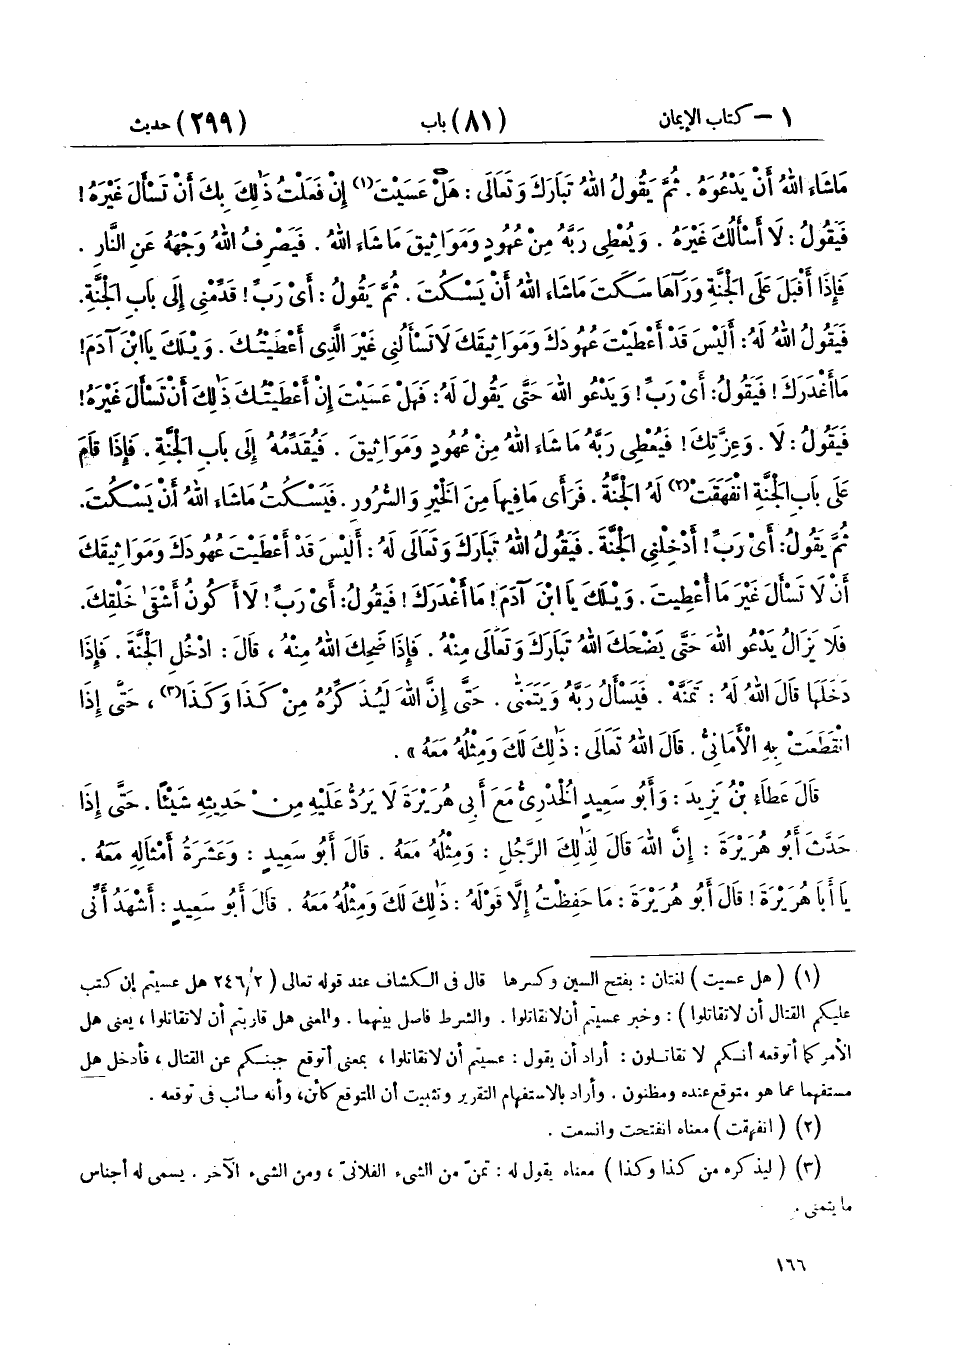 ١ – كتاب الإيمان (٨١) باب (٢٩٩) حديث
مَاشَاءَ اللهُ أَنْ يَدْعُوَهُ . ثُمَّ يَقُولُ اللهُ تَبَارَكَ وَتَعَالَى : هَلْ عَسَيْتَ(١) إِنْ فَعَلْتُ ذَٰلِكَ بِكَ أَنْ تَسْأَلَ غَيْرَهُ !
فَيَقُولُ : لَا أَسْأَلُكَ غَيْرَهُ . وَيُعْطِى رَبَّهُ مِنْ عُهُودٍ وَمَوَاثِيقَ مَا شَاءَ اللهُ . فَيَصْرِفُ اللهُ وَجْهَهُ عَنِ النَّارِ .
فَإِذَا أَقْبَلَ عَلَى الْجَنَّةِ وَرَآهَا سَكَتَ مَاشَاءَ اللهُ أَنْ يَسْكُتَ . ثُمَّ يَقُولُ : أَىْ رَبِّ ! قَدِّمْنِى إِلَى بَابِ الْجَنَّةِ.
فَيَقُولُ اللهُ لَهُ: أَلَيْسَ قَدْ أَعْطَيْتَ عُهُودَكَ وَمَوَاثِيقَكَ لَا تَسْأَلُنِى غَيْرَ الَّذِى أَعْطَيْتُكَ . وَيْلَكَ يَا ابْنَ آدَمَ!
مَا أَغْدَرَكَ ! فَيَقُولُ: أَىْ رَبِّ ! وَيَدْعُو اللهَ حَتَّى يَقُولَ لَهُ: فَهَلْ عَسَيْتَ إِنْ أَعْطَيْتُكَ ذَٰلِكَ أَنْ تَسْأَلَ غَيْرَهُ!
فَيَقُولُ : لَا . وَعِزَّتِكَ ! فَيُعْطِى رَبَّهُ مَا شَاءَ اللهُ مِنْ عُهُودٍ وَمَوَاثِيقَ . فَيُقَدِّمُهُ إِلَى بَابِ الْجَنَّةِ . فَإِذَا قَامَ
عَلَى بَابِ الْجَنَّةِ انْفَهَقَتْ(٢) لَهُ الْجَنَّةُ . فَرَأَى مَافِيهَا مِنَ الْخَيْرِ وَالسُّرُورِ . فَيَسْكُتُ مَاشَاءَ اللهُ أَنْ يَسْكُتَ.
ثُمَّ يَقُولُ: أَىْ رَبِّ ! أَدْخِلْنِى الْجَنَّةَ . فَيَقُولُ اللهُ تَبَارَكَ وَتَعَالَى لَهُ : أَلَيْسَ قَدْ أَعْطَيْتَ عُهُودَكَ وَمَوَاثِيقَكَ
أَنْ لَا تَسْأَلَ غَيْرَ مَا أُعْطِيتَ . وَيْلَكَ يَا ابْنَ آدَمَ! مَا أَغْدَرَكَ ! فَيَقُولُ: أَىْ رَبِّ ! لَا أَكُونُ أَشْقَىٰ خَلْقِكَ.
فَلَا يَزَالُ يَدْعُو اللهَ حَتَّى يَضْحَكَ اللهُ تَبَارَكَ وَتَعَالَى مِنْهُ . فَإِذَا ضَحِكَ اللهُ مِنْهُ ، قَالَ : ادْخُلِ الْجَنَّةَ . فَإِذَا
دَخَلَهَا قَالَ اللهُ لَهُ : تَمَنَّهْ . فَيَسْأَلُ رَبَّهُ وَيَتَمَنَّى . حَتَّى إِنَّ اللهَ لَيُذَكِّرُهُ مِنْ كَذَا وَكَذَا(٣) ، حَتَّى إِذَا
انْقَطَعَتْ بِهِ الْأَمَانِىُّ . قَالَ اللهُ تَعَالَى : ذَٰلِكَ لَكَ وَمِثْلُهُ مَعَهُ » .
قَالَ عَطَاءُ بْنُ يَزِيدَ : وَأَبُو سَعِيدٍ الْخُدْرِىُّ مَعَ أَبِى هُرَيْرَةَ لَا يَرُدُّ عَلَيْهِ مِنْ حَدِيثِهِ شَيْئًا . حَتَّى إِذَا
حَدَّثَ أَبُو هُرَيْرَةَ : إِنَّ اللهَ قَالَ لِذَٰلِكَ الرَّجُلِ : وَمِثْلُهُ مَعَهُ . قَالَ أَبُو سَعِيدٍ : وَعَشَرَةُ أَمْثَالِهِ مَعَهُ .
يَا أَبَا هُرَيْرَةَ ! قَالَ أَبُو هُرَيْرَةَ : مَا حَفِظْتُ إِلَّا قَوْلَهُ : ذَٰلِكَ لَكَ وَمِثْلُهُ مَعَهُ . قَالَ أَبُو سَعِيدٍ : أَشْهَدُ أَنِّى
(١) ( هل عسيت ) لغتان : بفتح السين وكسرها قال فى الكشاف عند قوله تعالى ( ٢٤٦/٢ هل عسيتم إن كتب
عليكم القتال أن لا تقاتلوا ) : وخبر عسيتم أن لا تقاتلوا . والشرط فاصل بينهما . والمعنى هل قاربتم أن لا تقاتلوا ، يعنى هل
الأمر كما أتوقعه أنكم لا تقاتلون : أراد أن يقول : عسيتم أن لا تقاتلوا ، بمعنى أتوقع جبنكم عن القتال ، فأدخل هل
مستفهما عما هو متوقع عنده ومظنون . وأراد بالاستفهام التقرير وتثبيت أن المتوقع كائن، وأنه صائب فى توقعه .
(٢) ( انفهقت ) معناه انفتحت واتسعت .
(٣) ( ليذكره من كذا وكذا ) معناه يقول له : تمنّ من الشىء الفلانىّ ، ومن الشىء الآخر . يسمى له أجناس
ما يتمنى .
١٦٦